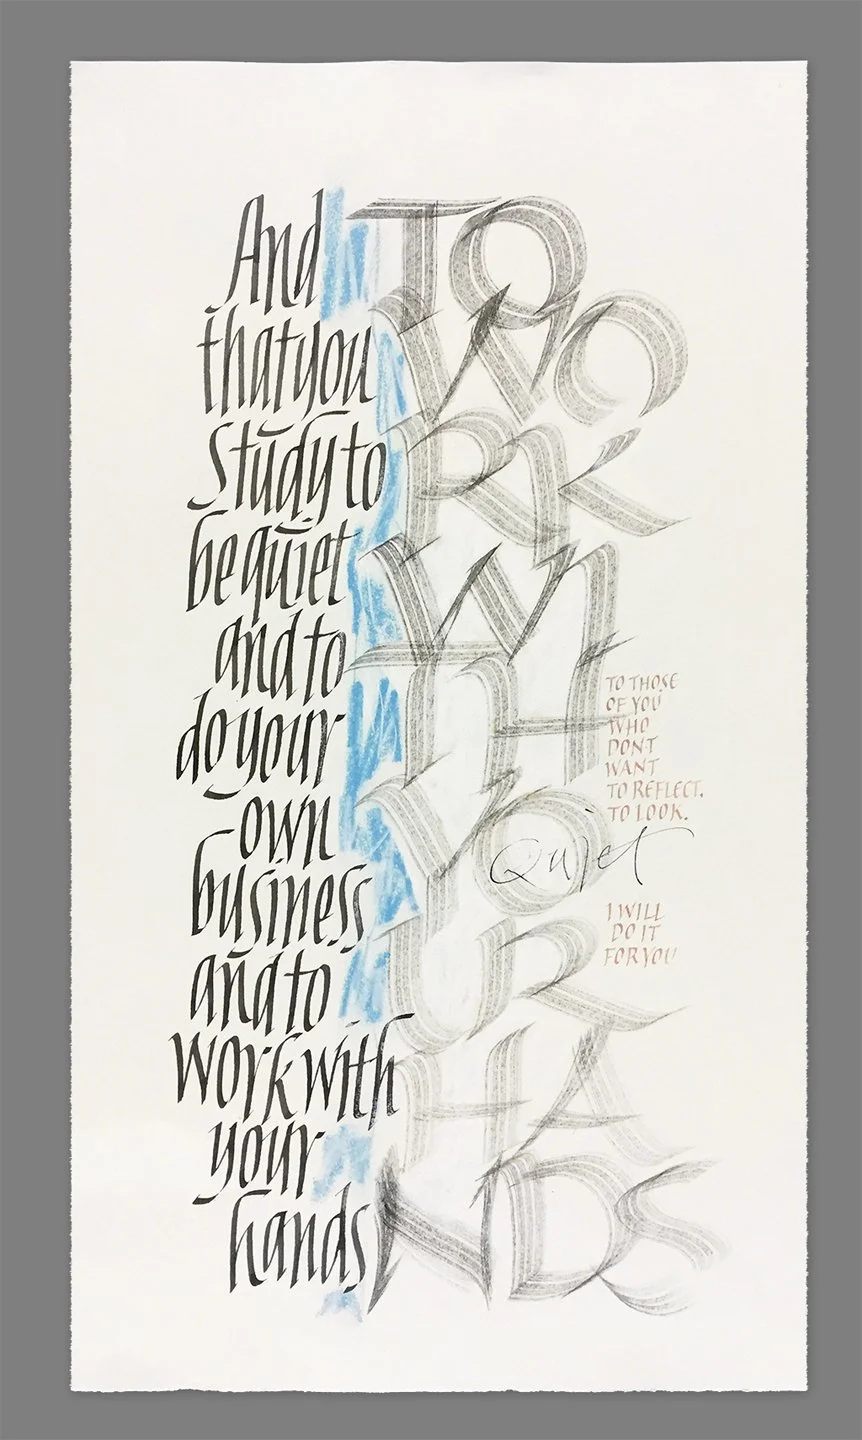 And
that you
Study to
be quiet
and to
do your
own
business
and to
work with
your
hands
TO
WO
RK
WI
TH
YO
UR
HA
NDS
TO THOSE
OF YOU
WHO
DONT
WANT
TO REFLECT.
TO LOOK.
Quiet
I WILL
DO IT
FOR YOU